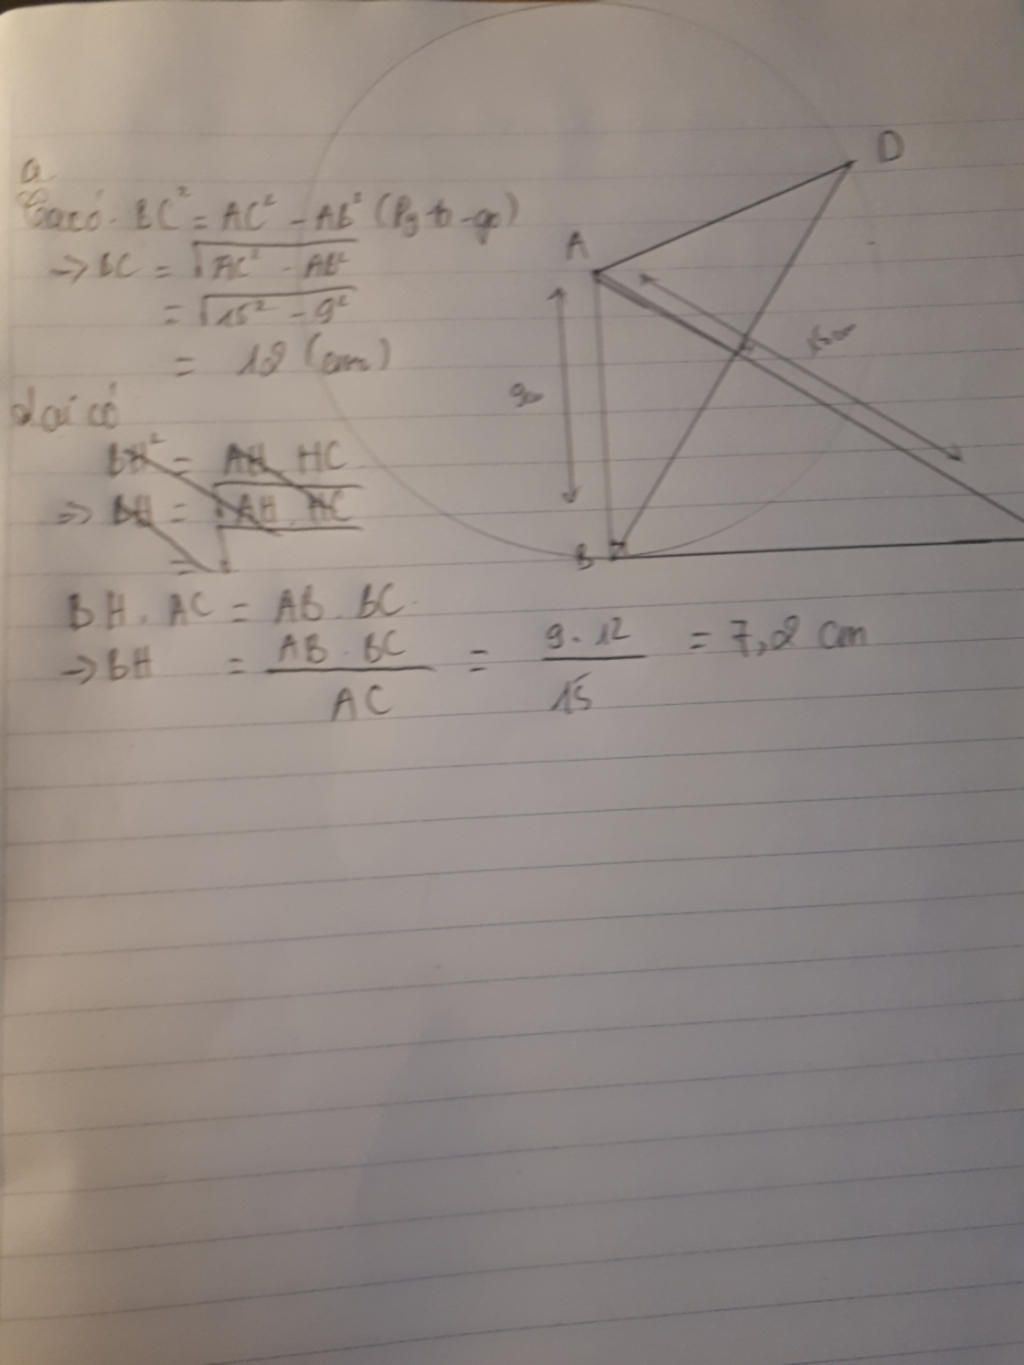 a
Ta có. BC² = AC² - AB² (Py-ta-go)
→ BC = √AC² - AB²
= √15² - 9²
= 12 (cm)
Lại có
BH² = AH . HC
⇒ BH = √AH . HC
=
BH . AC = AB . BC
→ BH = AB . BC / AC = 9 . 12 / 15 = 7,2 cm
D
A
15cm
9cm
B